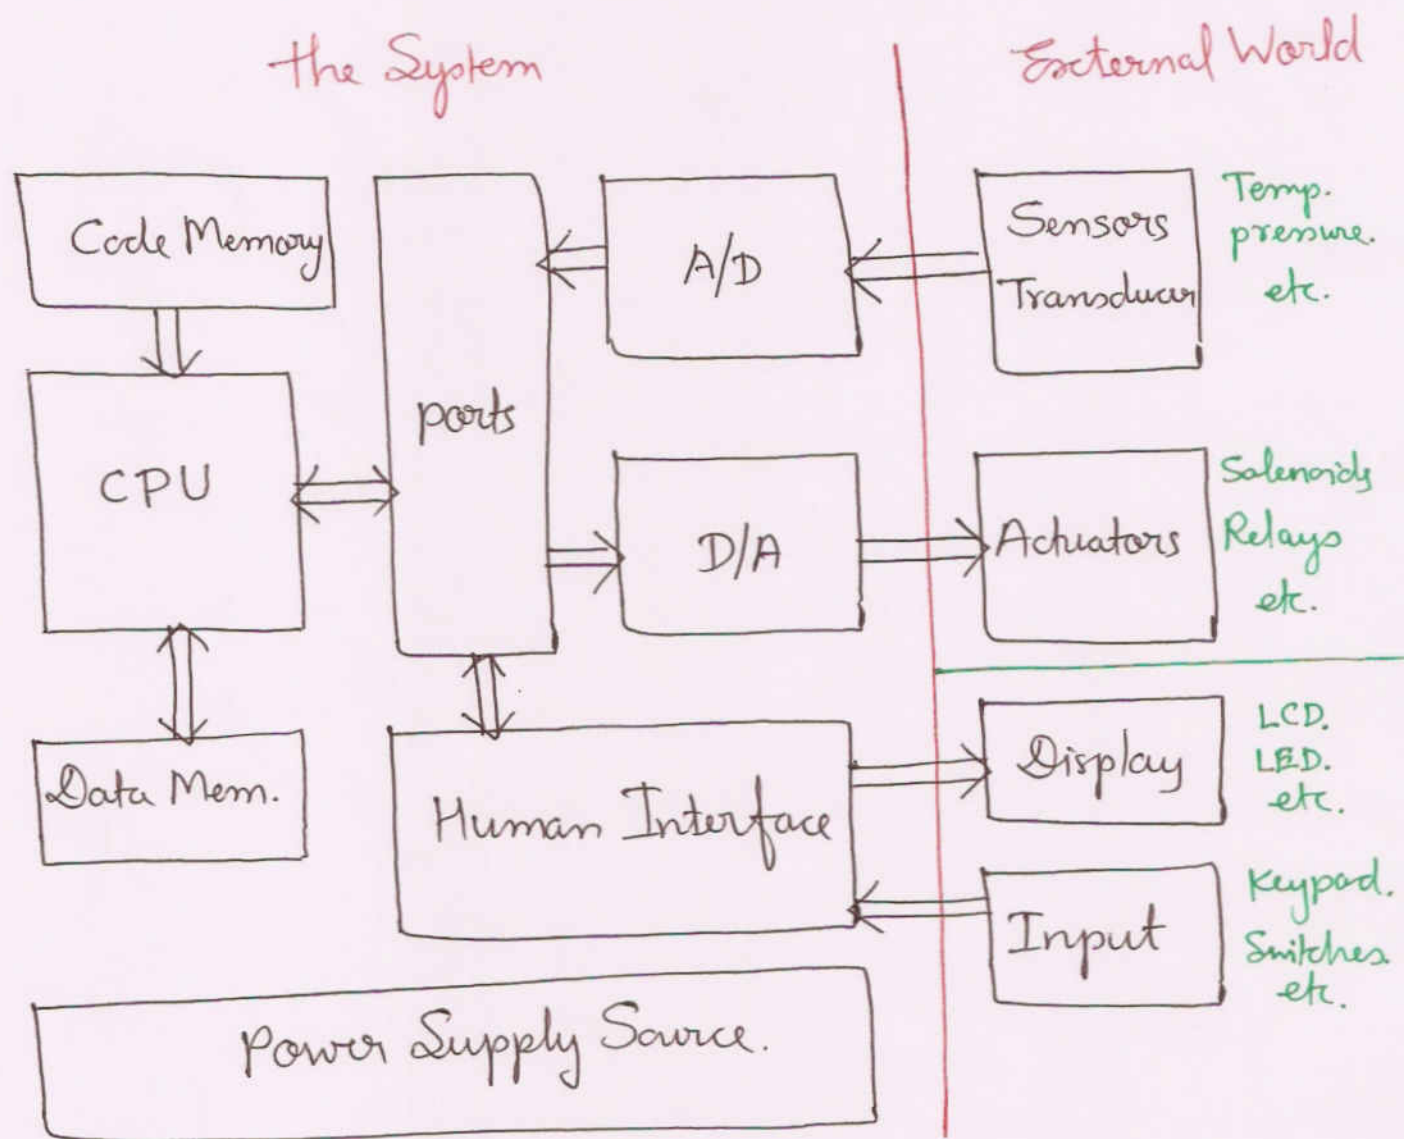 the System
External World
Code Memory
CPU
Data Mem.
ports
A/D
D/A
Human Interface
Power Supply Source.
Sensors
Transducer
Temp.
pressure.
etc.
Actuators
Solenoids
Relays
etc.
Display
LCD.
LED.
etc.
Input
Keypad.
Switches
etc.